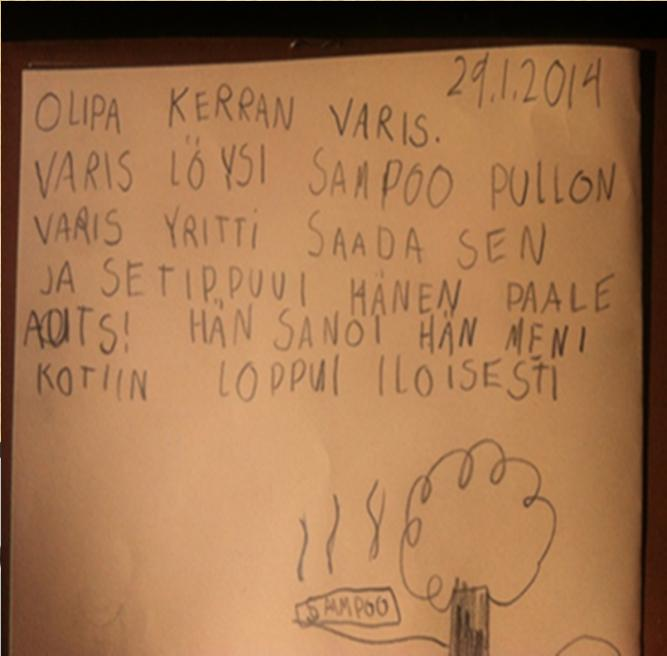 29.1.2014
OLIPA KERRAN VARIS.
VARIS LÖYSI SAMPOO PULLON
VARIS YRITTI SAADA SEN
JA SETIPPUUI HÄNEN PAALE
AUTS! HÄN SANOI HÄN MENI
KOTIIN LOPPUI ILOISESTI
SAMPOO